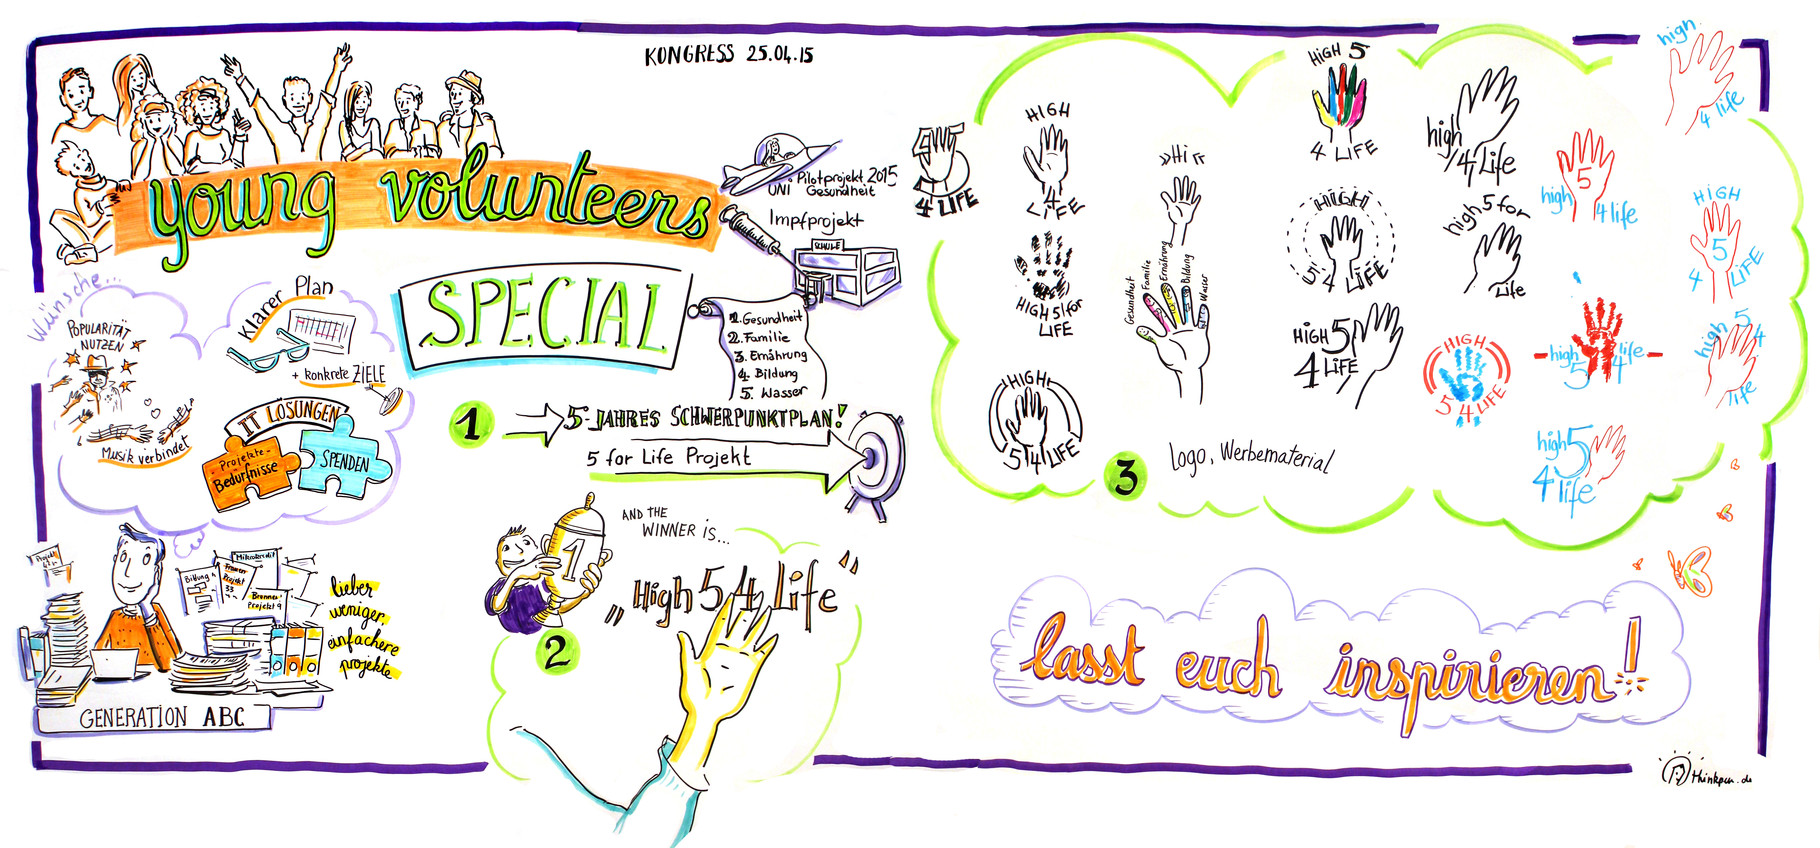 KONGRESS 25.04.15
young volunteers
UNI Pilotprojekt 2015
Gesundheit
Impfprojekt
SCHULE
SPECIAL
1. Gesundheit
2. Familie
3. Ernährung
4. Bildung
5. Wasser
Wünsche...
POPULARITÄT
NUTZEN
Musik verbindet
Klarer Plan
+ konkrete ZIELE
IT LÖSUNGEN
Projekte-
Bedürfnisse
SPENDEN
1
5-JAHRES SCHWERPUNKTPLAN!
5 for Life Projekt
Projekt
Bildung
Mikrokredit
Frauen
Projekt
33
Brunnen
Projekt 9
lieber
weniger,
einfachere
projekte
GENERATION ABC
AND THE
WINNER is...
1
2
„High 5 4 Life“
HIGH
5
4 LIFE
HIGH
4
LIFE
HIGH 5 for
LIFE
HIGH
5 4 LIFE
»Hi«
Gesundheit
Familie
Ernährung
Bildung
Wasser
HIGH 5
4 LIFE
HIGH
5 4 LIFE
HIGH 5
4 LIFE
high
4 Life
high 5 for
Life
HIGH
5 4 LIFE
high 5
4 life
high 5 4 life
high 5
4 life
high
4 life
HIGH
5
4 LIFE
high 5 4
life
3
Logo, Werbematerial
lasst euch inspirieren!
thinkpen.de